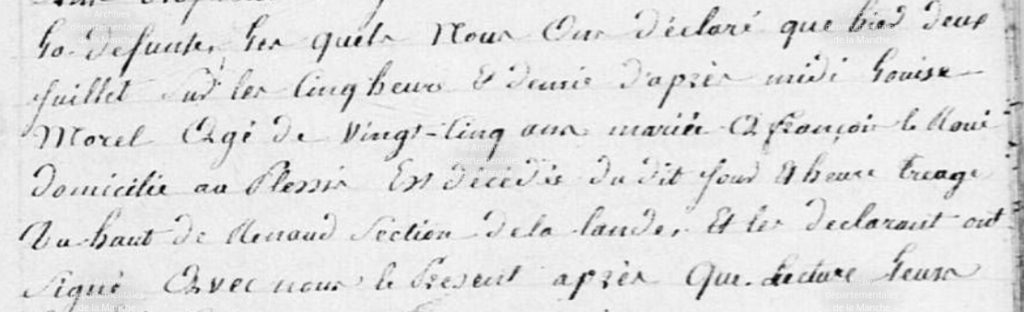 La defunte, Les quels Nous Ons déclaré que hier deux
Juillet sur les Cinq heure Et demie d'après midi Louise
Morel Agé de Vingt-Cinq ans mariée A françois le
domicilie au Plessis Est décédée du dit Jour Et heure treage
Du haut de Renaud Section dela lande, Et les declarant ont
Signé Avec nous le Present après Que Lecture Leurs